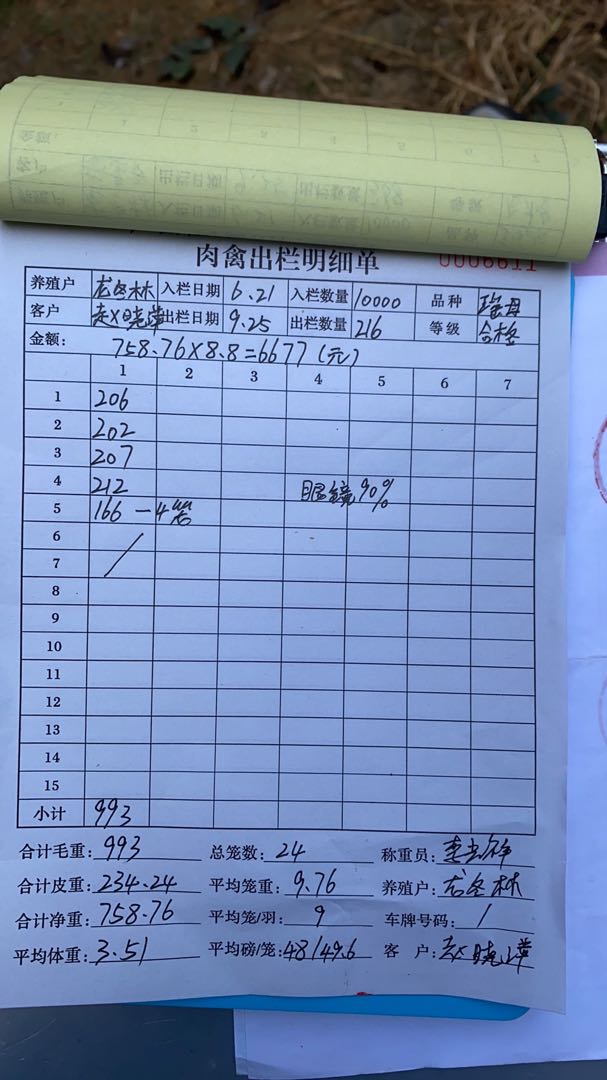 肉禽出栏明细单 0006611
养殖户 龙冬林 入栏日期 6.21 入栏数量 10000 品种 瑶母
客户 赵晓萍 出栏日期 9.25 出栏数量 216 等级 合格
金额: 758.76×8.8=6677(元)
1 2 3 4 5 6 7
1 206
2 202
3 207
4 212 眼镜90%
5 166 — 4笼
6
7
8
9
10
11
12
13
14
15
小计 993
合计毛重: 993 总笼数: 24 称重员:
合计皮重: 234.24 平均笼重: 9.76 养殖户: 龙冬林
合计净重: 758.76 平均笼/羽: 9 车牌号码: /
平均体重: 3.51 平均磅/笼: 48/49.6 客 户: 赵晓萍